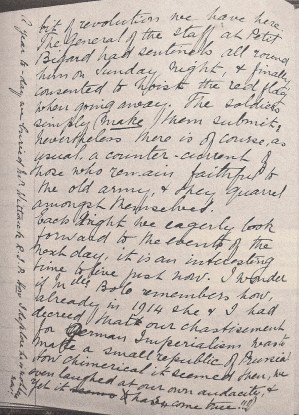 bit of revolution we have here.
The General of the staff at Petit
had sentinels all round
him on Sunday night, & finally
consented to hoist the red flag
when going away. The soldiers
simply make them submit,
nevertheless there is of course, as
usual, a counter-current of
those who remain faithful to
the old army, & they quarrel
amongst themselves.
Each night we eagerly look
forward to the events of the
next day, it is an interesting
time to live just now. I wonder
if Mlle remembers how,
already in 1914 she & I had
decreed that our chastisement
for German Imperialism was to
make a small republic of
how chimerical it seemed then, we
even laughed at our own audacity, &
yet it seems has come true!!!
A year to-day we buried R.I.P. How